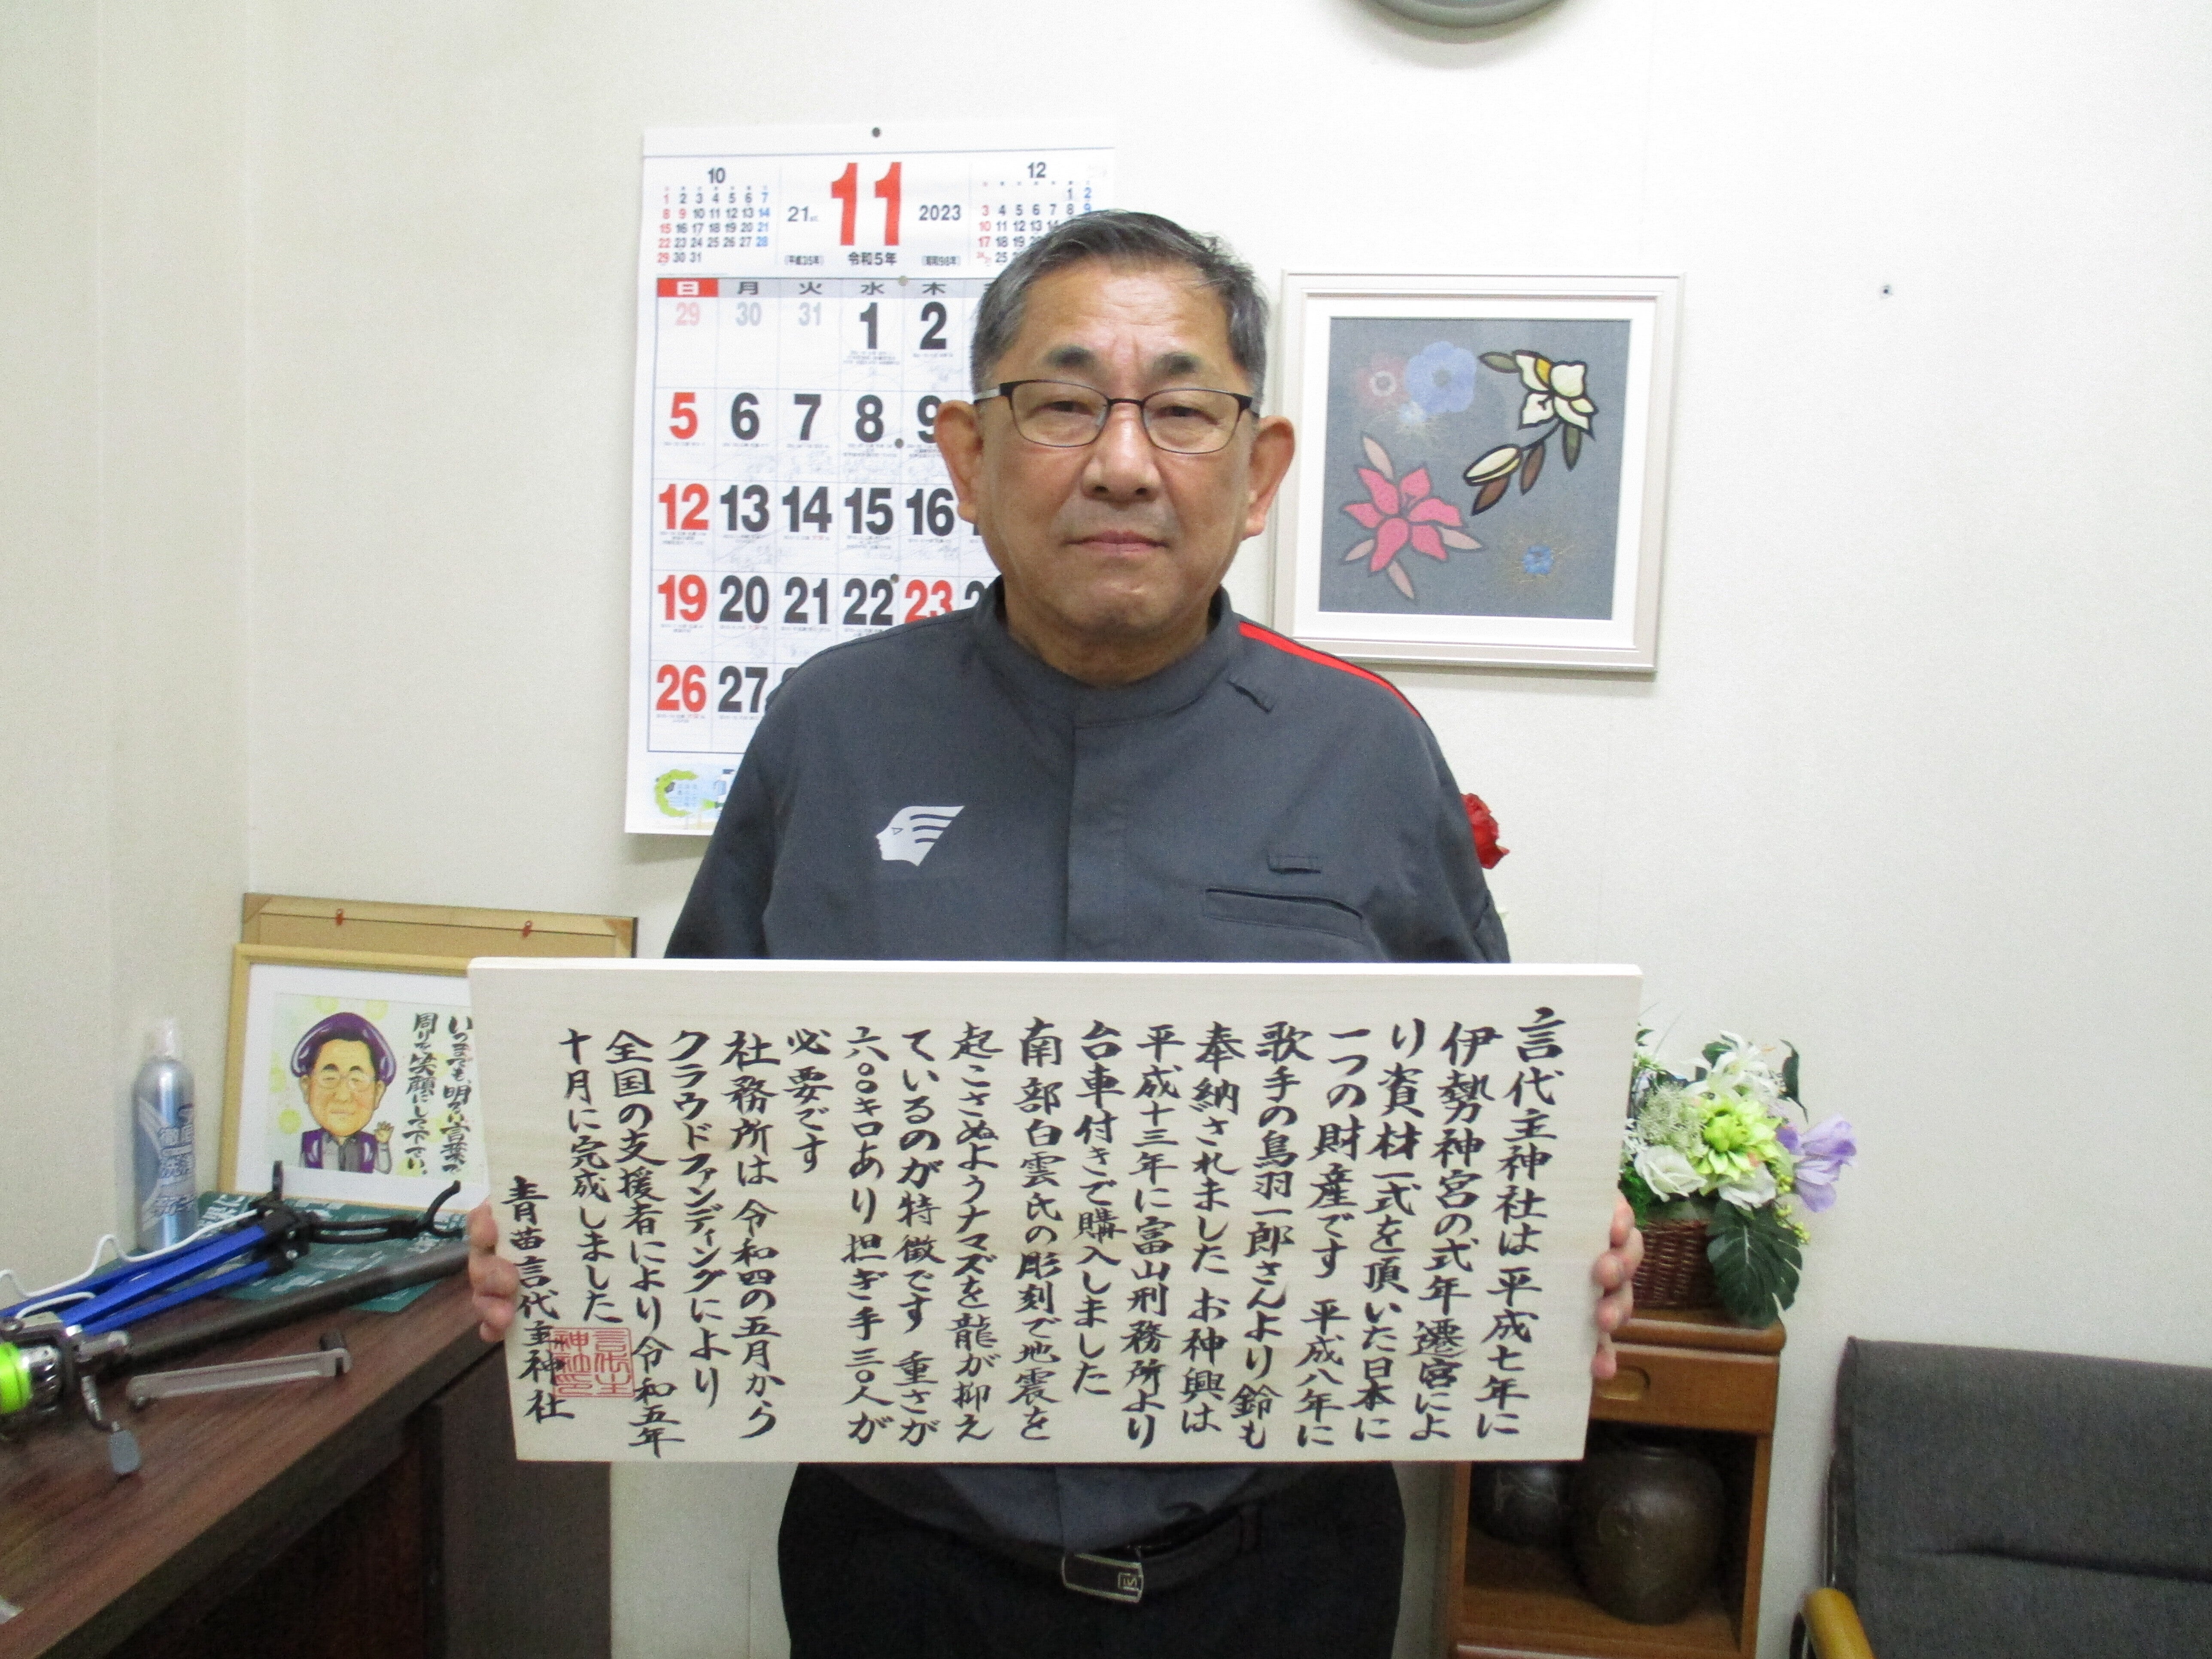 言代主神社は平成七年に
伊勢神宮の式年遷宮によ
り資材一式を頂いた日本に
一つの財産です 平成八年に
歌手の鳥羽一郎さんより鈴も
奉納されました お神輿は
平成十三年に富山刑務所より
台車付きで購入しました
南部白雲氏の彫刻で地震を
起こさぬようナマズを龍が抑え
ているのが特徴です 重さが
六〇〇キロあり担ぎ手三〇人が
必要です
社務所は令和四の五月から
クラウドファンディングにより
全国の支援者により令和五年
十月に完成しました
青苗言代主神社
言代主
神社印
10
1 2 3 4 5 6 7
8 9 10 11 12 13 14
15 16 17 18 19 20 21
22 23 24 25 26 27 28
29 30 31
21
11
2023
(平成35年)
令和5年
(昭和98年)
12
1 2
3 4 5 6 7 8 9
10 11 12 13 14
17 18 19
25
日 月 火 水 木
29 30 31 1 2
5 6 7 8 9
12 13 14 15 16
19 20 21 22 23
26 27
いつまでも、明るい言葉で
周りを笑顔にして下さい。